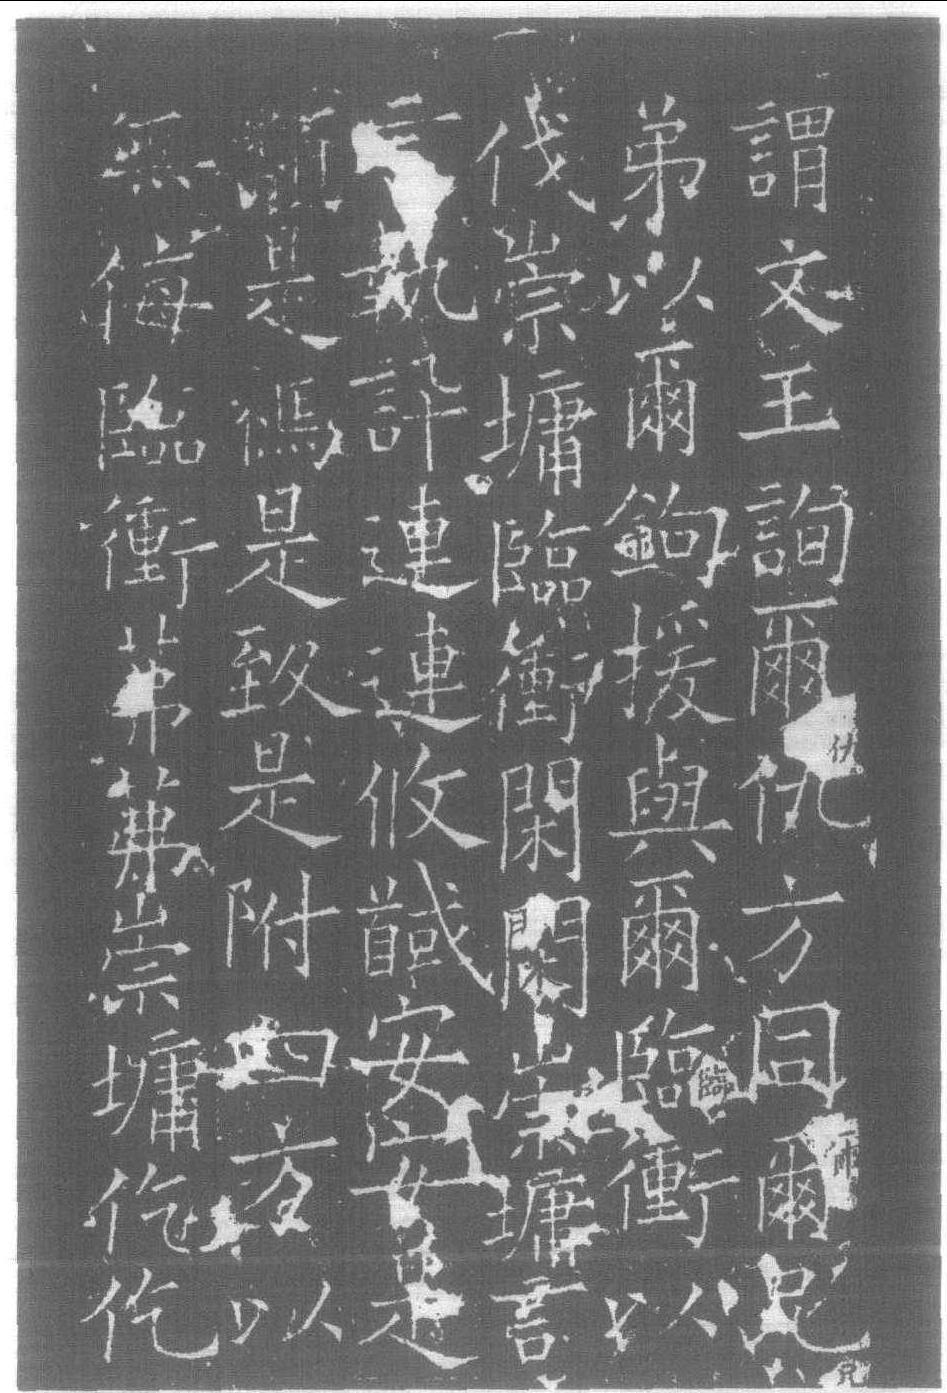 謂文王詢爾仇方同爾兄
弟以爾鉤援與爾臨衝以
伐崇墉臨衝閑閑崇墉言
言執訊連連攸馘安安是
類是禡是致是附四方以
無侮臨衝茀茀崇墉仡仡
臨